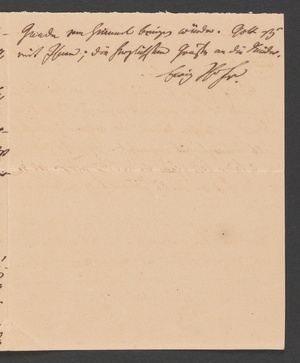 Gnade vom Himmel bringen würde. Gott sey
mit Ihnen; die herzlichsten Grüße an die Kinder.
Ewig Ihr